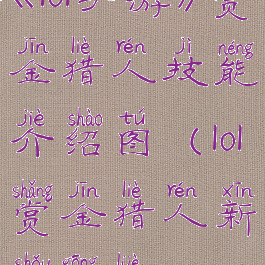 《lol手游》赏
jīn liè rén jì néng
金猎人技能
jiè shào tú
介绍图（lol
shǎng jīn liè rén xīn
赏金猎人新